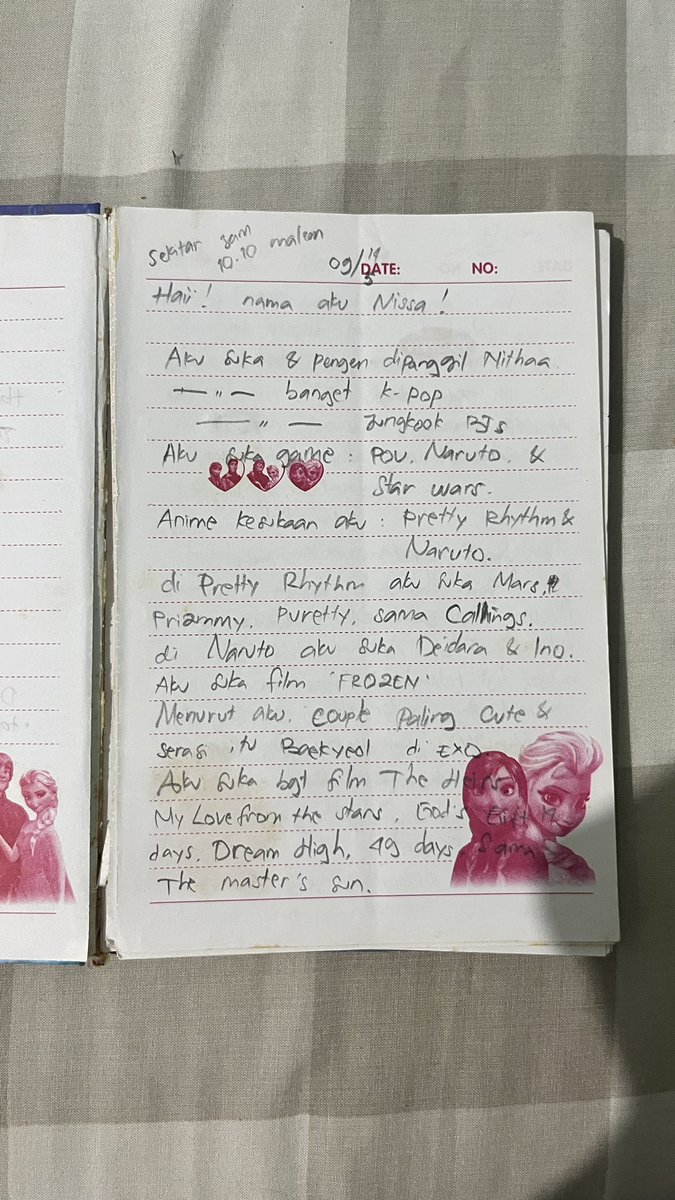 Sekitar jam
10.10 malem
09/
DATE:
NO:
Haii! nama aku Nissa!
Aku suka & pengen dipanggil Nithaa
— " — banget k-pop
— " — Jungkook BTS
Aku suka game : POU, Naruto, &
Star wars.
Anime kesukaan aku : Pretty Rhythm &
Naruto.
di Pretty Rhythm aku suka Mars,
Prizmmy, Puretty, sama Callings.
di Naruto aku suka Deidara & Ino.
Aku suka film 'FROZEN'
Menurut aku, couple paling cute &
serasi itu Baekyeol di EXO
Aku suka bgt film The Heirs
My Love from the stars, God's Gift 14
days, Dream High, 49 days sama
The master's sun.